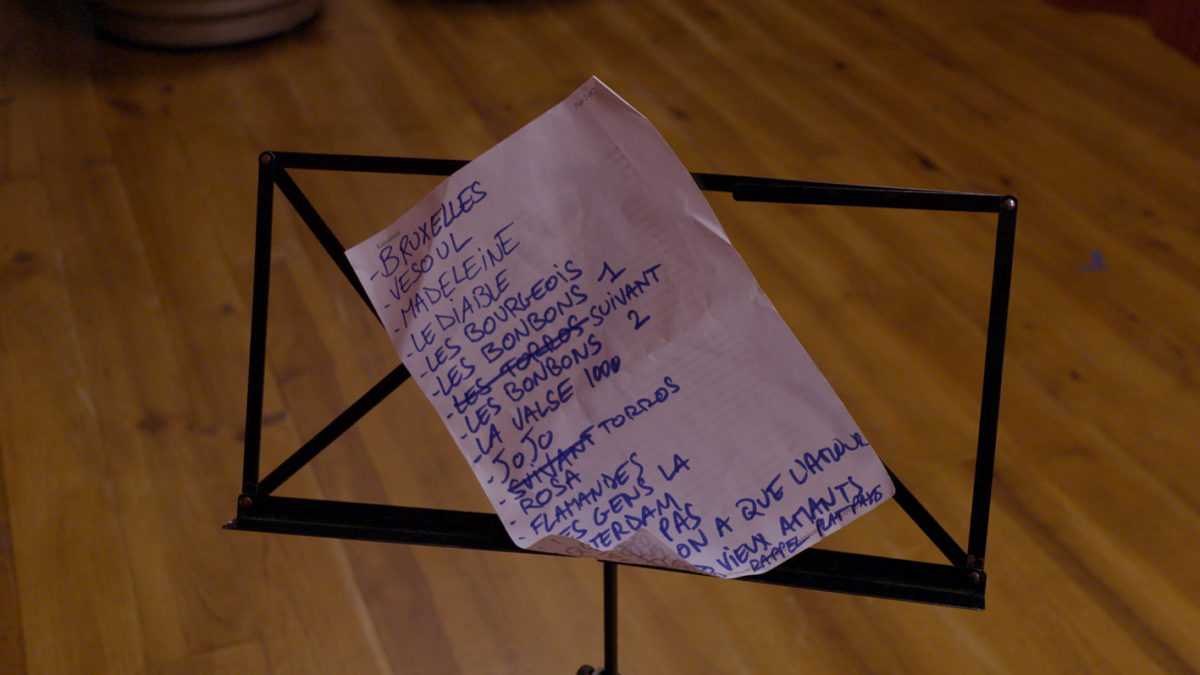 Page 2 of 2
- BRUXELLES
- VESOUL
- MADELEINE
- LE DIABLE
- LES BOURGEOIS
- LES BONBONS 1
- LES TORROS SUIVANT
- LES BONBONS 2
- LA VALSE 1000
- JOJO
- SUIVANT TORROS
- ROSA
- FLAMANDES
- ES GENS LA
TERDAM
PAS
ON A QUE
VIEUX AMANTS
RAPPEL PLAT PAYS